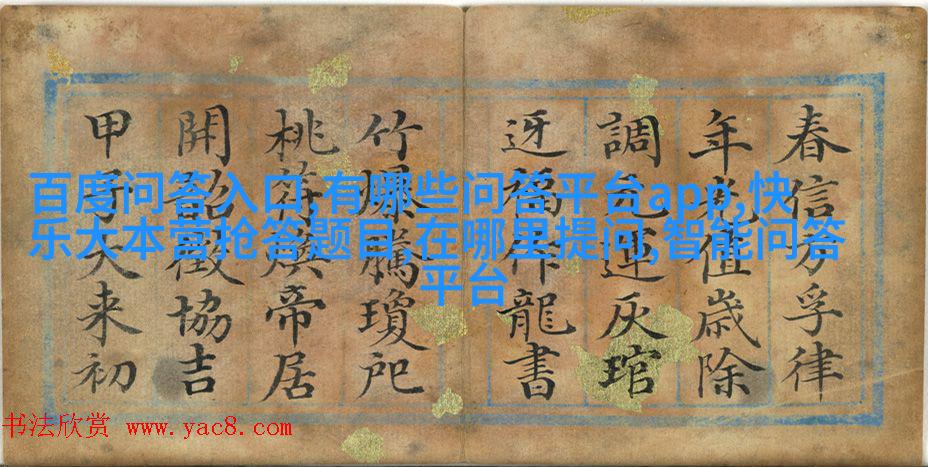 百度问答入口,有哪些问答平台app,快
乐大本营抢答题目,在哪里提问,智能问答
平台
春信方孚律
年光值歲除
調元運灰琯
迓福作龍書
竹爆騰瓊
桃符煥帝居
開韶徵協吉
甲子來初
书法欣赏 www.yac8.com